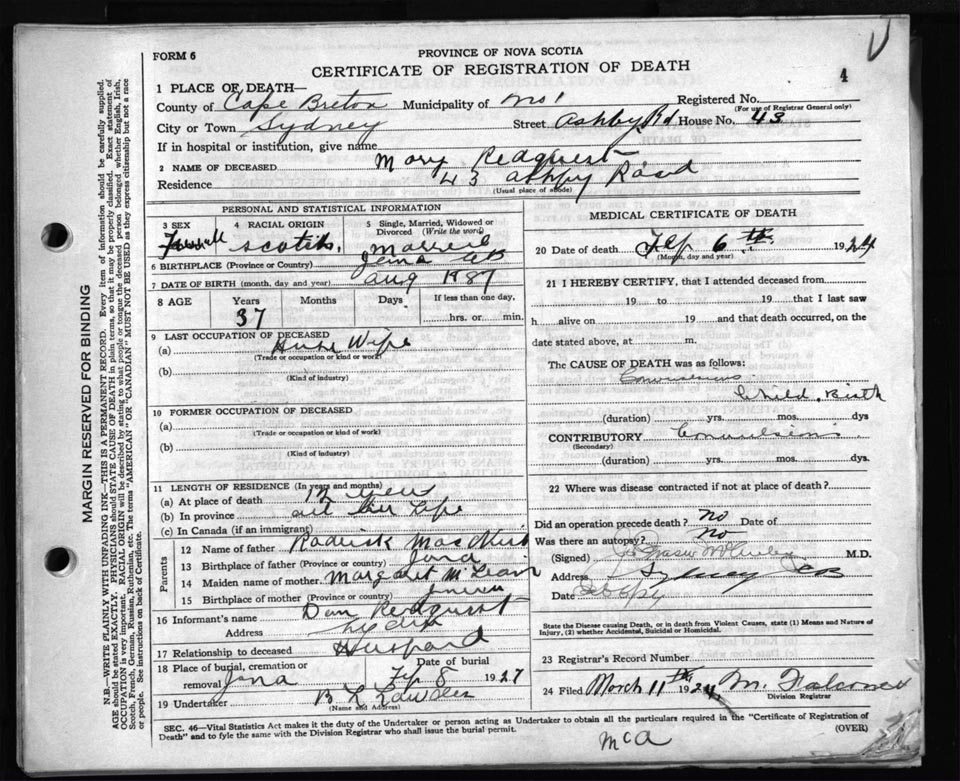 FORM 6
PROVINCE OF NOVA SCOTIA
CERTIFICATE OF REGISTRATION OF DEATH
4
1 PLACE OF DEATH—
County of Cape Breton Municipality of No 1 Registered No.
(For use of Registrar General only)
City or Town Sydney Street Ashby Rd House No. 43
If in hospital or institution, give name
2 NAME OF DECEASED Mary Redquest
Residence 43 Ashby Road
(Usual place of abode)
PERSONAL AND STATISTICAL INFORMATION
3 SEX 4 RACIAL ORIGIN 5 Single, Married, Widowed or Divorced (Write the word)
Scotish
6 BIRTHPLACE (Province or Country) CB
7 DATE OF BIRTH (month, day and year) Aug 1887
8 AGE Years Months Days If less than one day,
37 hrs. or min.
9 LAST OCCUPATION OF DECEASED
(a) Wife
(Trade or occupation or kind of work)
(b)
(Kind of industry)
10 FORMER OCCUPATION OF DECEASED
(a)
(Trade or occupation or kind of work)
(b)
(Kind of industry)
11 LENGTH OF RESIDENCE (In years and months)
(a) At place of death 12
(b) In province all her Life
(c) In Canada (if an immigrant)
Parents
12 Name of father Roderick
13 Birthplace of father (Province or country) Iona
14 Maiden name of mother Margaret McLean
15 Birthplace of mother (Province or country)
16 Informant's name Dan Redquest
Address
17 Relationship to deceased Husband
18 Place of burial, cremation or removal Iona Date of burial 8 1927
19 Undertaker B L
(Name and Address)
MEDICAL CERTIFICATE OF DEATH
20 Date of death 6th 1924
(Month, day and year)
21 I HEREBY CERTIFY, that I attended deceased from
19 to 19 that I last saw
h alive on 19 and that death occurred, on
date stated above, at m.
The CAUSE OF DEATH was as follows:
Child Birth
(duration) yrs. mos. dys
CONTRIBUTORY Convulsions
(Secondary)
(duration) yrs. mos. dys.
22 Where was disease contracted if not at place of death?
Did an operation precede death? no Date of
Was there an autopsy? no
(Signed) M.D.
Address Sydney CB
Date
State the Disease causing Death, or in death from Violent Causes, state (1) Means and Nature of Injury, (2) whether Accidental, Suicidal or Homicidal.
23 Registrar's Record Number
24 Filed March 11th 1924 M.
Division Registrar
SEC. 46—Vital Statistics Act makes it the duty of the Undertaker or person acting as Undertaker to obtain all the particulars required in the "Certificate of Registration of
Death" and to fyle the same with the Division Registrar who shall issue the burial permit. (OVER)
McA
MARGIN RESERVED FOR BINDING
N.B.—WRITE PLAINLY WITH UNFADING INK—THIS IS A PERMANENT RECORD. Every item of information should be carefully supplied.
AGE should be stated EXACTLY. PHYSICIANS should STATE CAUSE OF DEATH in plain terms, so that it may be properly classified. Exact statement of
OCCUPATION is very important. RACIAL ORIGIN will be described by stating to what people or tongue the deceased person belonged whether English, Irish,
Scotch, French, German, Russian, Ruthenian, etc. The terms "AMERICAN" or "CANADIAN" MUST NOT BE USED as they express citizenship but not a race
or people. See instructions on back of Certificate.